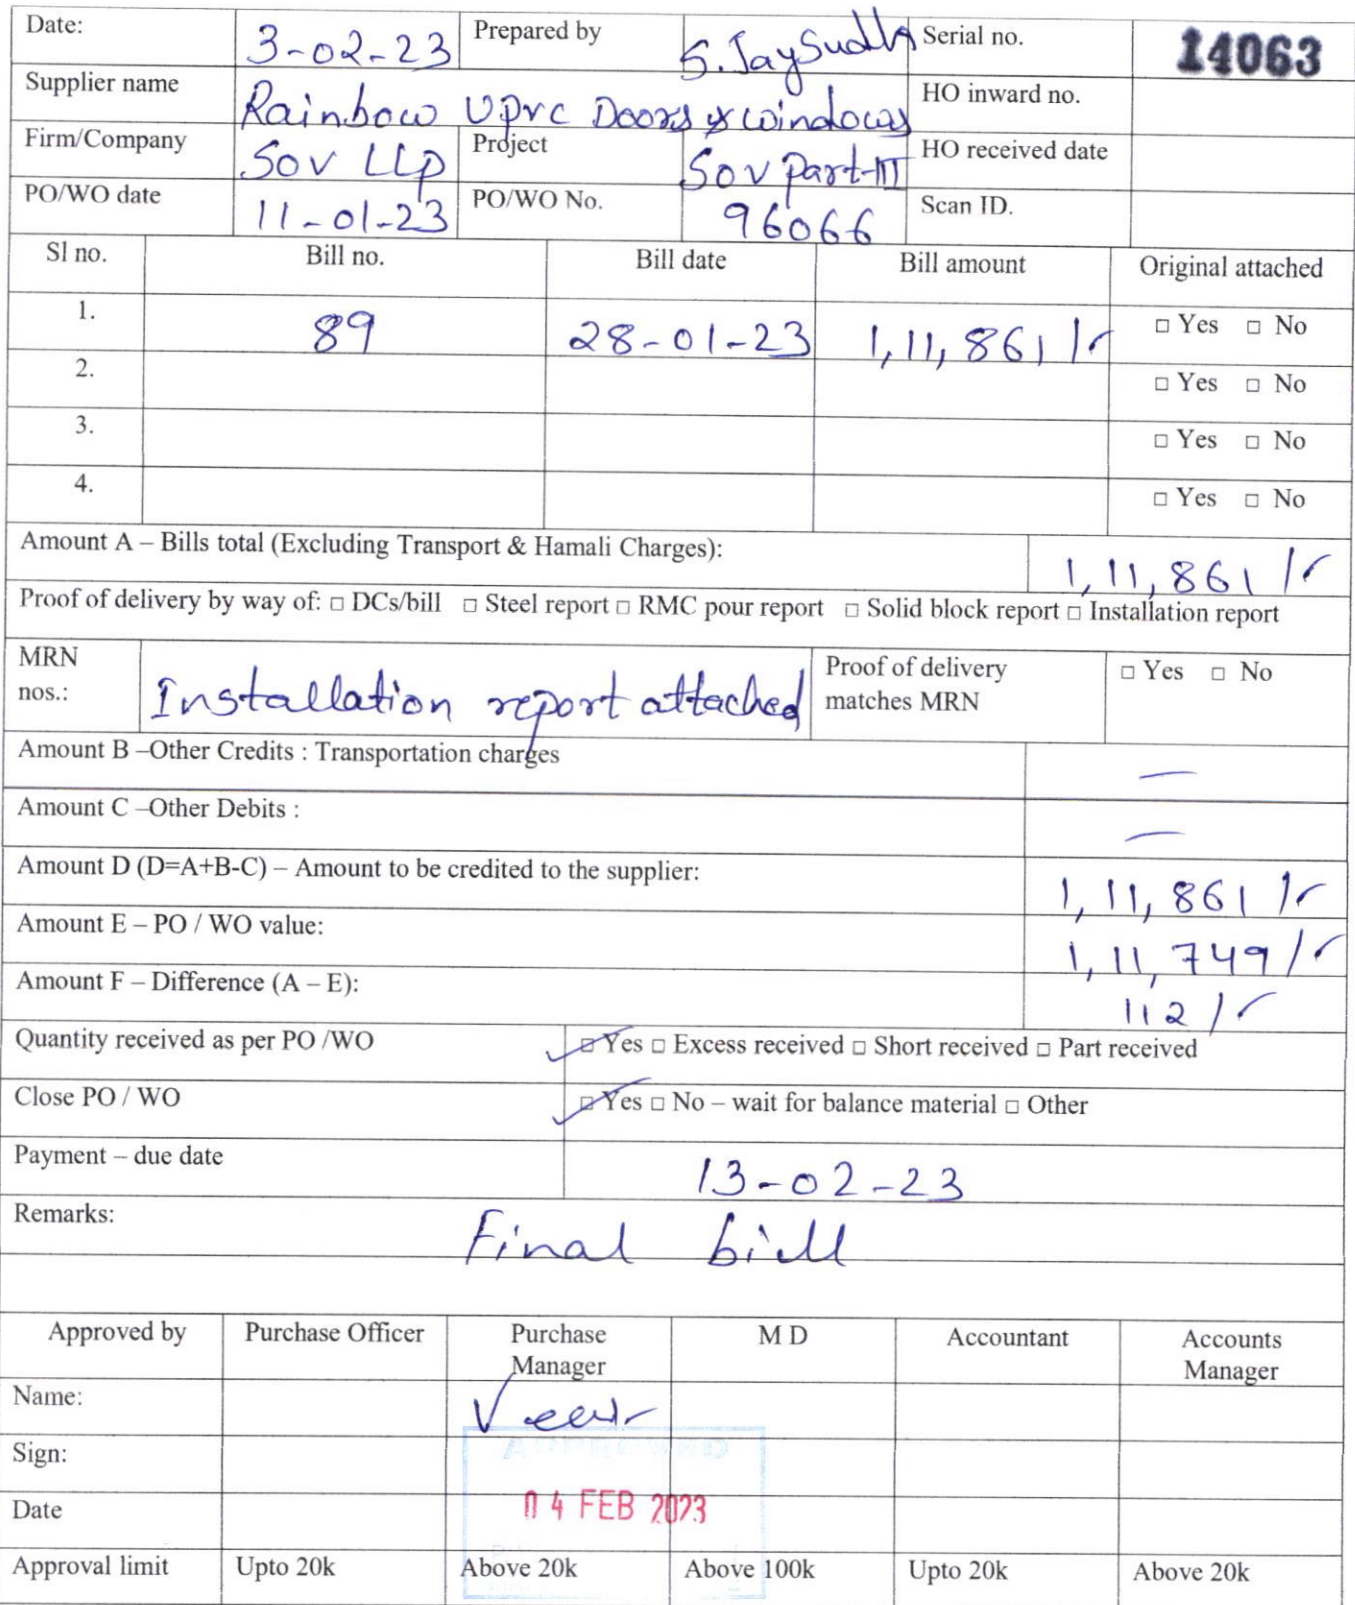 Date: 3-02-23 Prepared by S. Jaysudha Serial no. 14063
Supplier name Rainbow Upvc Doors & windows HO inward no.
Firm/Company SOV LLP Project SOV Part-III HO received date
PO/WO date 11-01-23 PO/WO No. 96066 Scan ID.
Sl no. Bill no. Bill date Bill amount Original attached
1. 89 28-01-23 1,11,861/- □ Yes □ No
2. □ Yes □ No
3. □ Yes □ No
4. □ Yes □ No
Amount A – Bills total (Excluding Transport & Hamali Charges): 1,11,861/-
Proof of delivery by way of: □ DCs/bill □ Steel report □ RMC pour report □ Solid block report □ Installation report
MRN nos.: Installation report attached Proof of delivery matches MRN □ Yes □ No
Amount B –Other Credits : Transportation charges —
Amount C –Other Debits : —
Amount D (D=A+B-C) – Amount to be credited to the supplier: 1,11,861/-
Amount E – PO / WO value: 1,11,749/-
Amount F – Difference (A – E): 112/-
Quantity received as per PO /WO ☑ Yes □ Excess received □ Short received □ Part received
Close PO / WO ☑ Yes □ No – wait for balance material □ Other
Payment – due date 13-02-23
Remarks: Final bill
Approved by Purchase Officer Purchase Manager M D Accountant Accounts Manager
Name:
Sign: APPROVED
Date 04 FEB 2023
Approval limit Upto 20k Above 20k Above 100k Upto 20k Above 20k